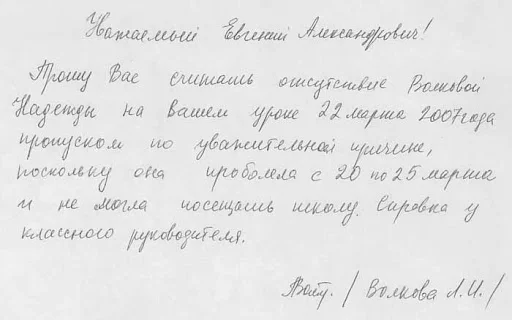 Уважаемый Евгений Александрович!
Прошу Вас считать отсутствие Волковой
Надежды на Вашем уроке 22 марта 2007 года
пропуском по уважительной причине,
поскольку она проболела с 20 по 25 марта
и не могла посещать школу. Справка у
классного руководителя.
/ Волкова Л.И. /